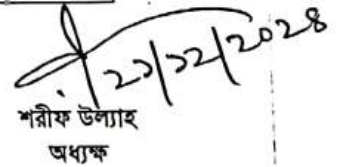 ২১/১২/২০২৪
শরীফ উল্যাহ
অধ্যক্ষ